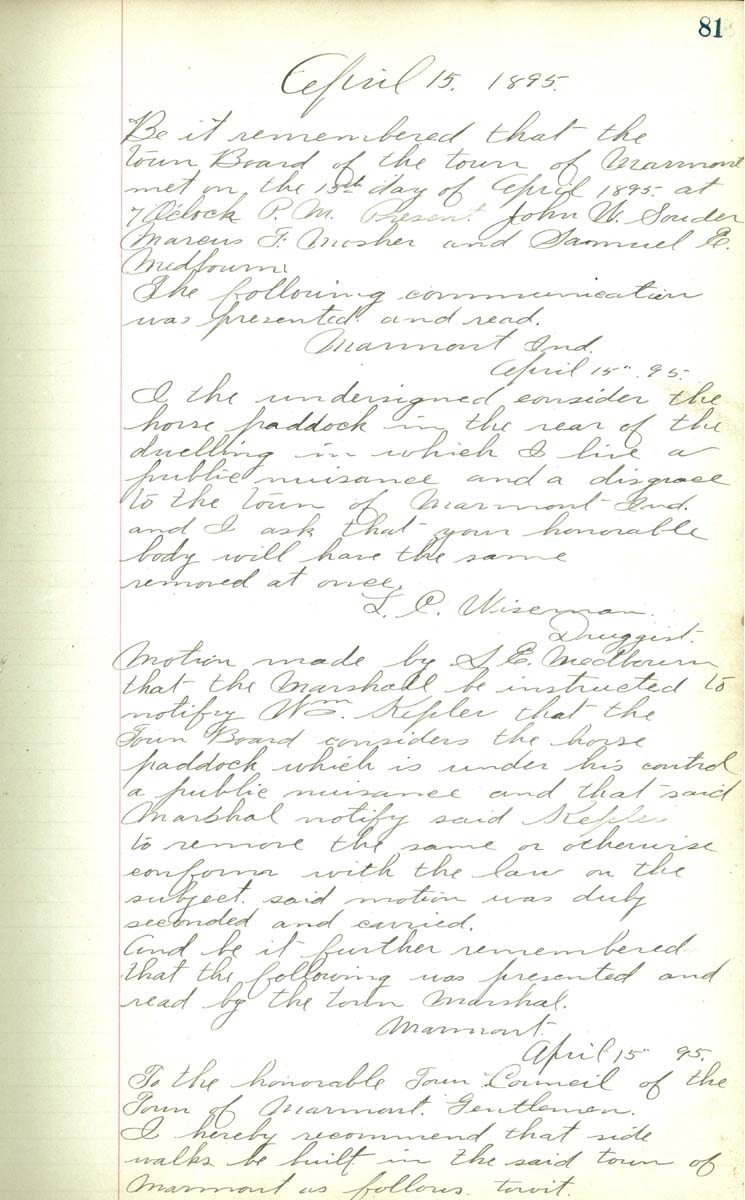 81
April 15. 1895.
Be it remembered that the
town Board of the town of Marmont
met on the 15th day of April 1895. at
7 O'clock P. M. Present John W. Souder
Marcus F. Mosher and Samuel E.
Medbourn.
The following communication
was presented. and read.
Marmont Ind.
April 15" 95.
I the undersigned consider the
horse paddock in the rear of the
dwelling in which I live a
public nuisance and a disgrace
to the town of Marmont Ind.
and I ask that your honorable
body will have the same
removed at once.
L. C. Wiseman.
Druggist.
Motion made by S. E. Medbourn
that the Marshall be instructed to
notifiy Wm. Kepler that the
Town Board considers the horse
paddock which is under his control
a public nuisance and that said
Marshal notify said Kepler
to remove the same or otherwise
conform with the law on the
subject. said motion was duly
seconded and carried.
And be it further remembered
that the following was presented and
read by the town Marshal.
Marmont.
April 15" 95.
To the honorable Town Council of the
Town of Marmont. Gentlemen.
I hereby recommend that side
walks be built in the said town of
Marmont as follows. towit